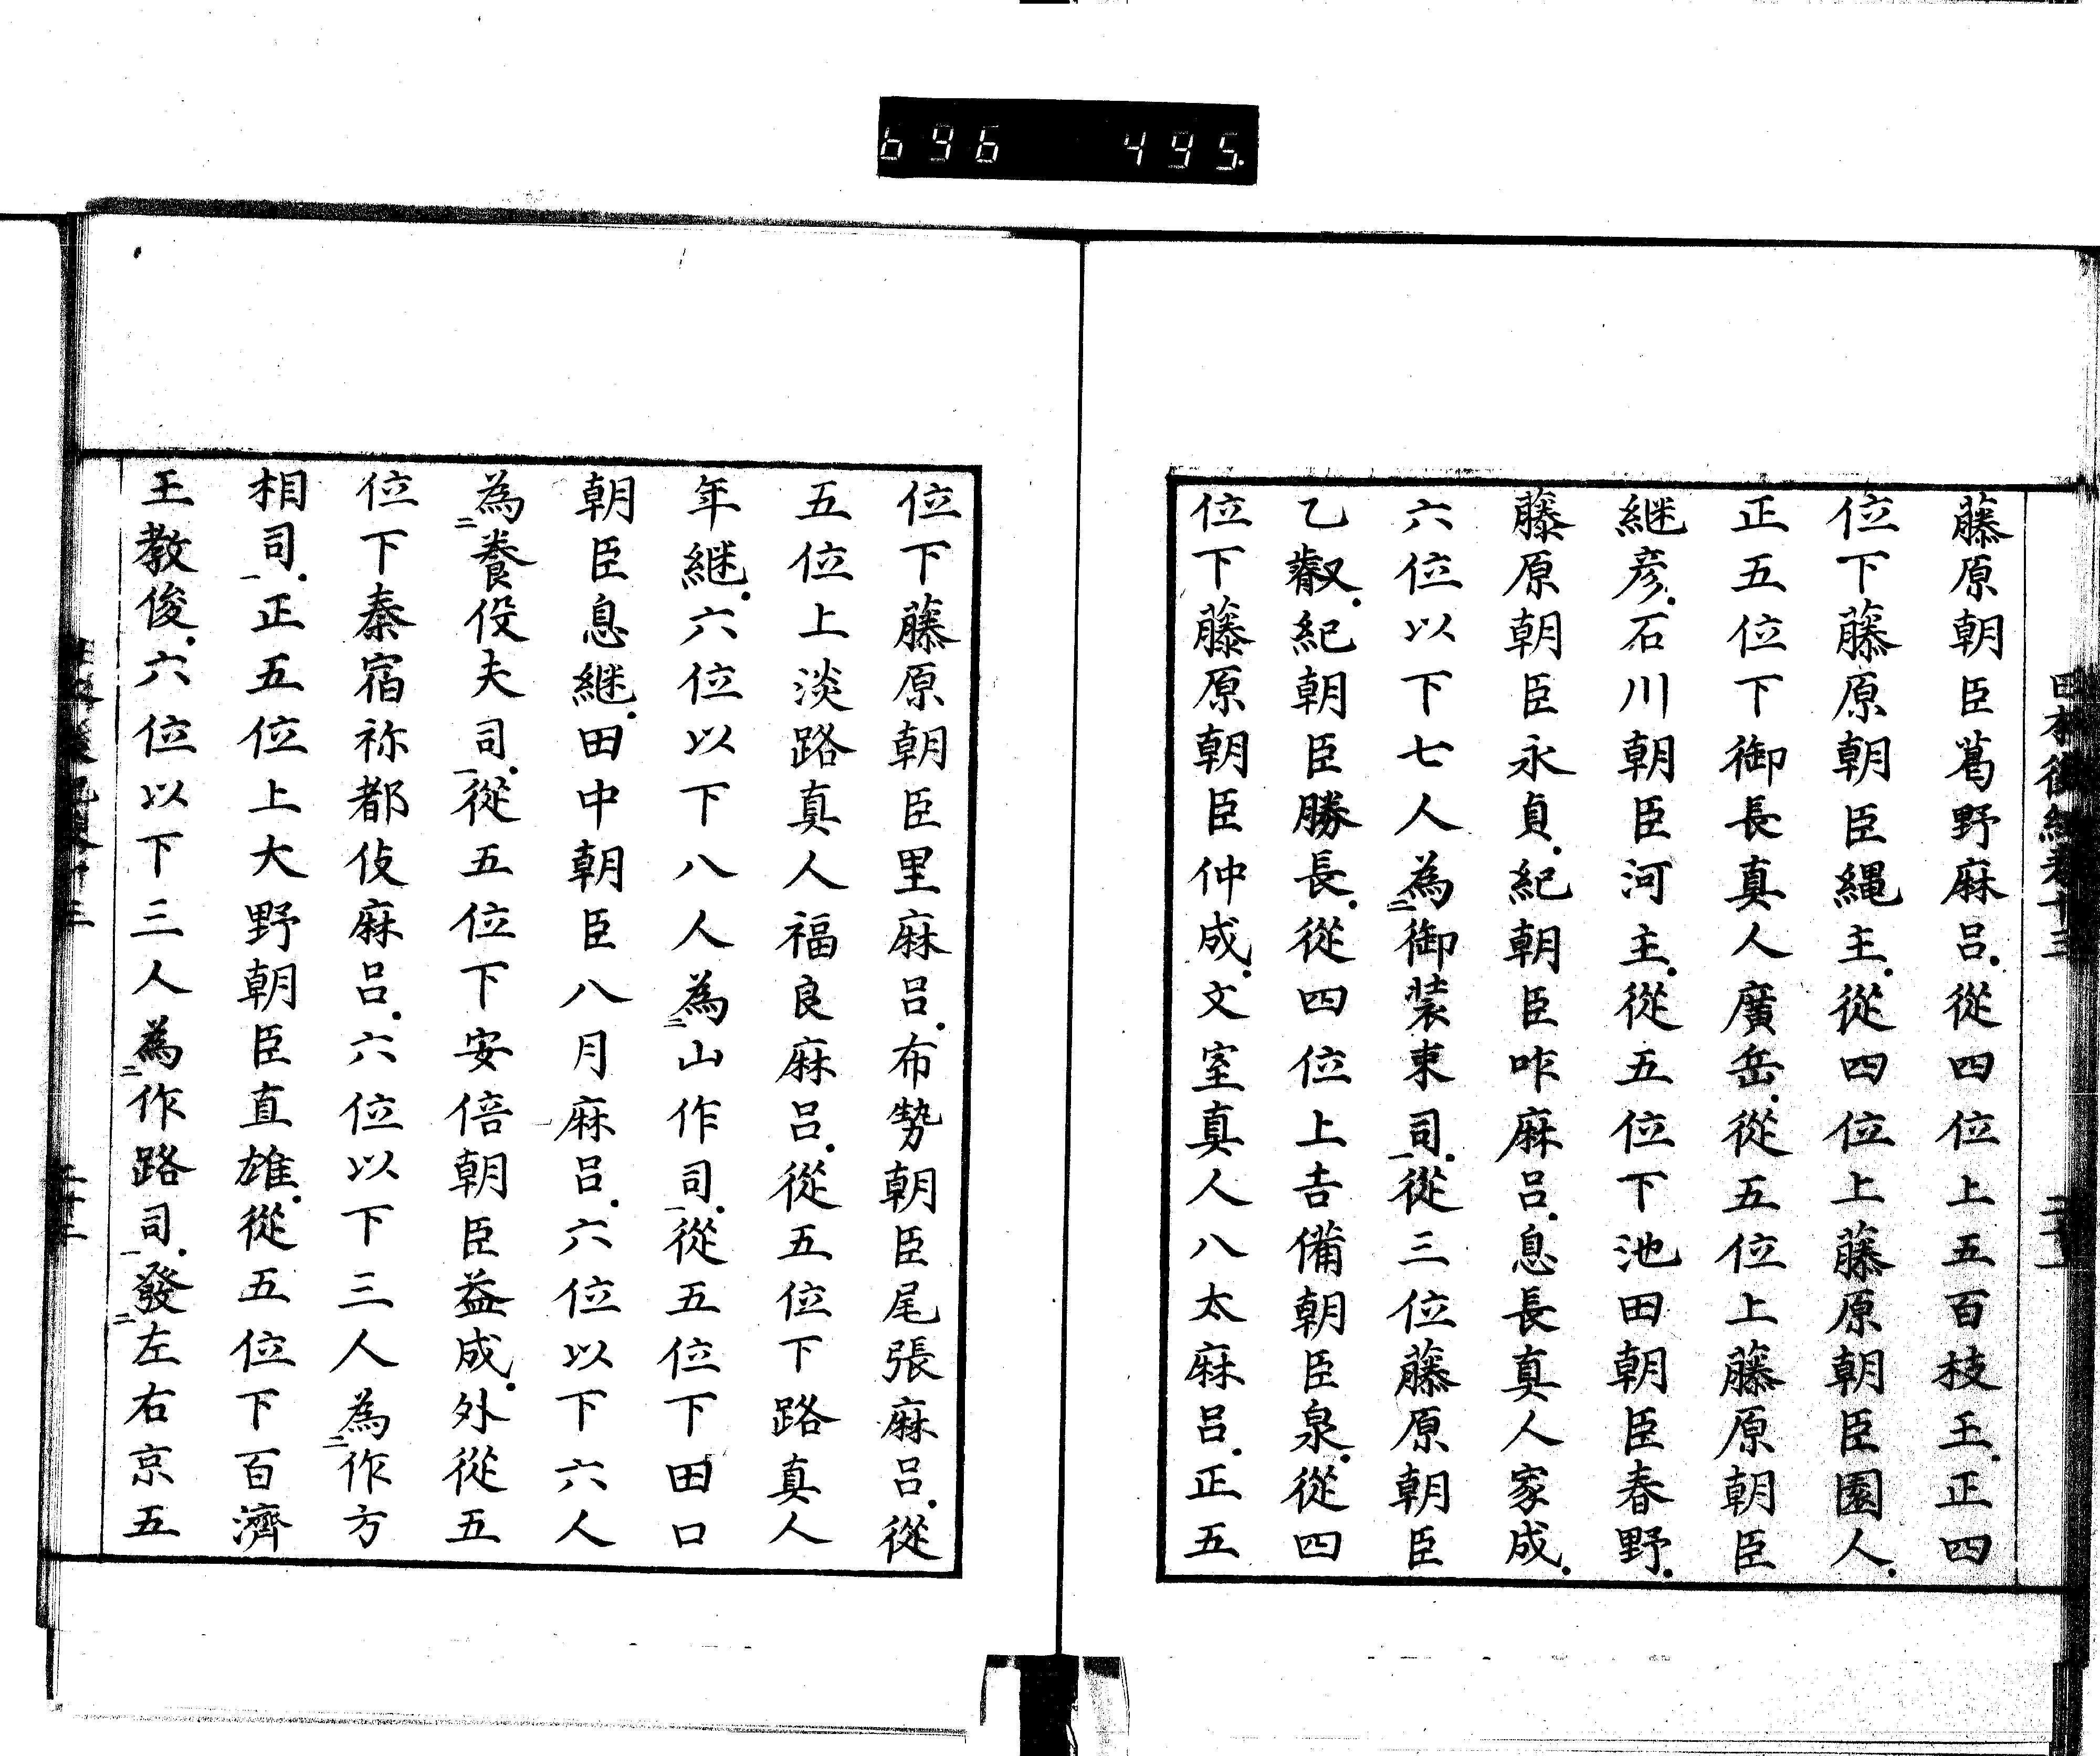 696 495
日本後紀卷十三
藤原朝臣葛野麻呂.從四位上五百枝王.正四
位下藤原朝臣縄主.從四位上藤原朝臣園人.
正五位下御長真人廣岳.從五位上藤原朝臣
継彦.石川朝臣河主.從五位下池田朝臣春野.
藤原朝臣永貞.紀朝臣咋麻呂.息長真人家成.
六位以下七人為二御装束司一.從三位藤原朝臣
乙叡.紀朝臣勝長.從四位上吉備朝臣泉.從四
位下藤原朝臣仲成.文室真人八太麻呂.正五
位下藤原朝臣里麻呂.布勢朝臣尾張麻呂.從
五位上淡路真人福良麻呂.從五位下路真人
年継.六位以下八人為二山作司一.從五位下田口
朝臣息継.田中朝臣八月麻呂.六位以下六人
為二養役夫司一.從五位下安倍朝臣益成.外從五
位下秦宿祢都伎麻呂.六位以下三人為二作方
相司一.正五位上大野朝臣直雄.從五位下百濟
王教俊.六位以下三人為二作路司一.發二左右京五